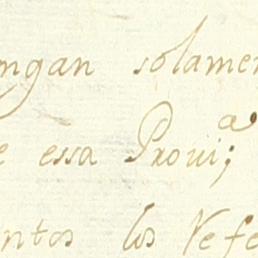 ngan solamen
e essa Proui;ª
ntos los Refe